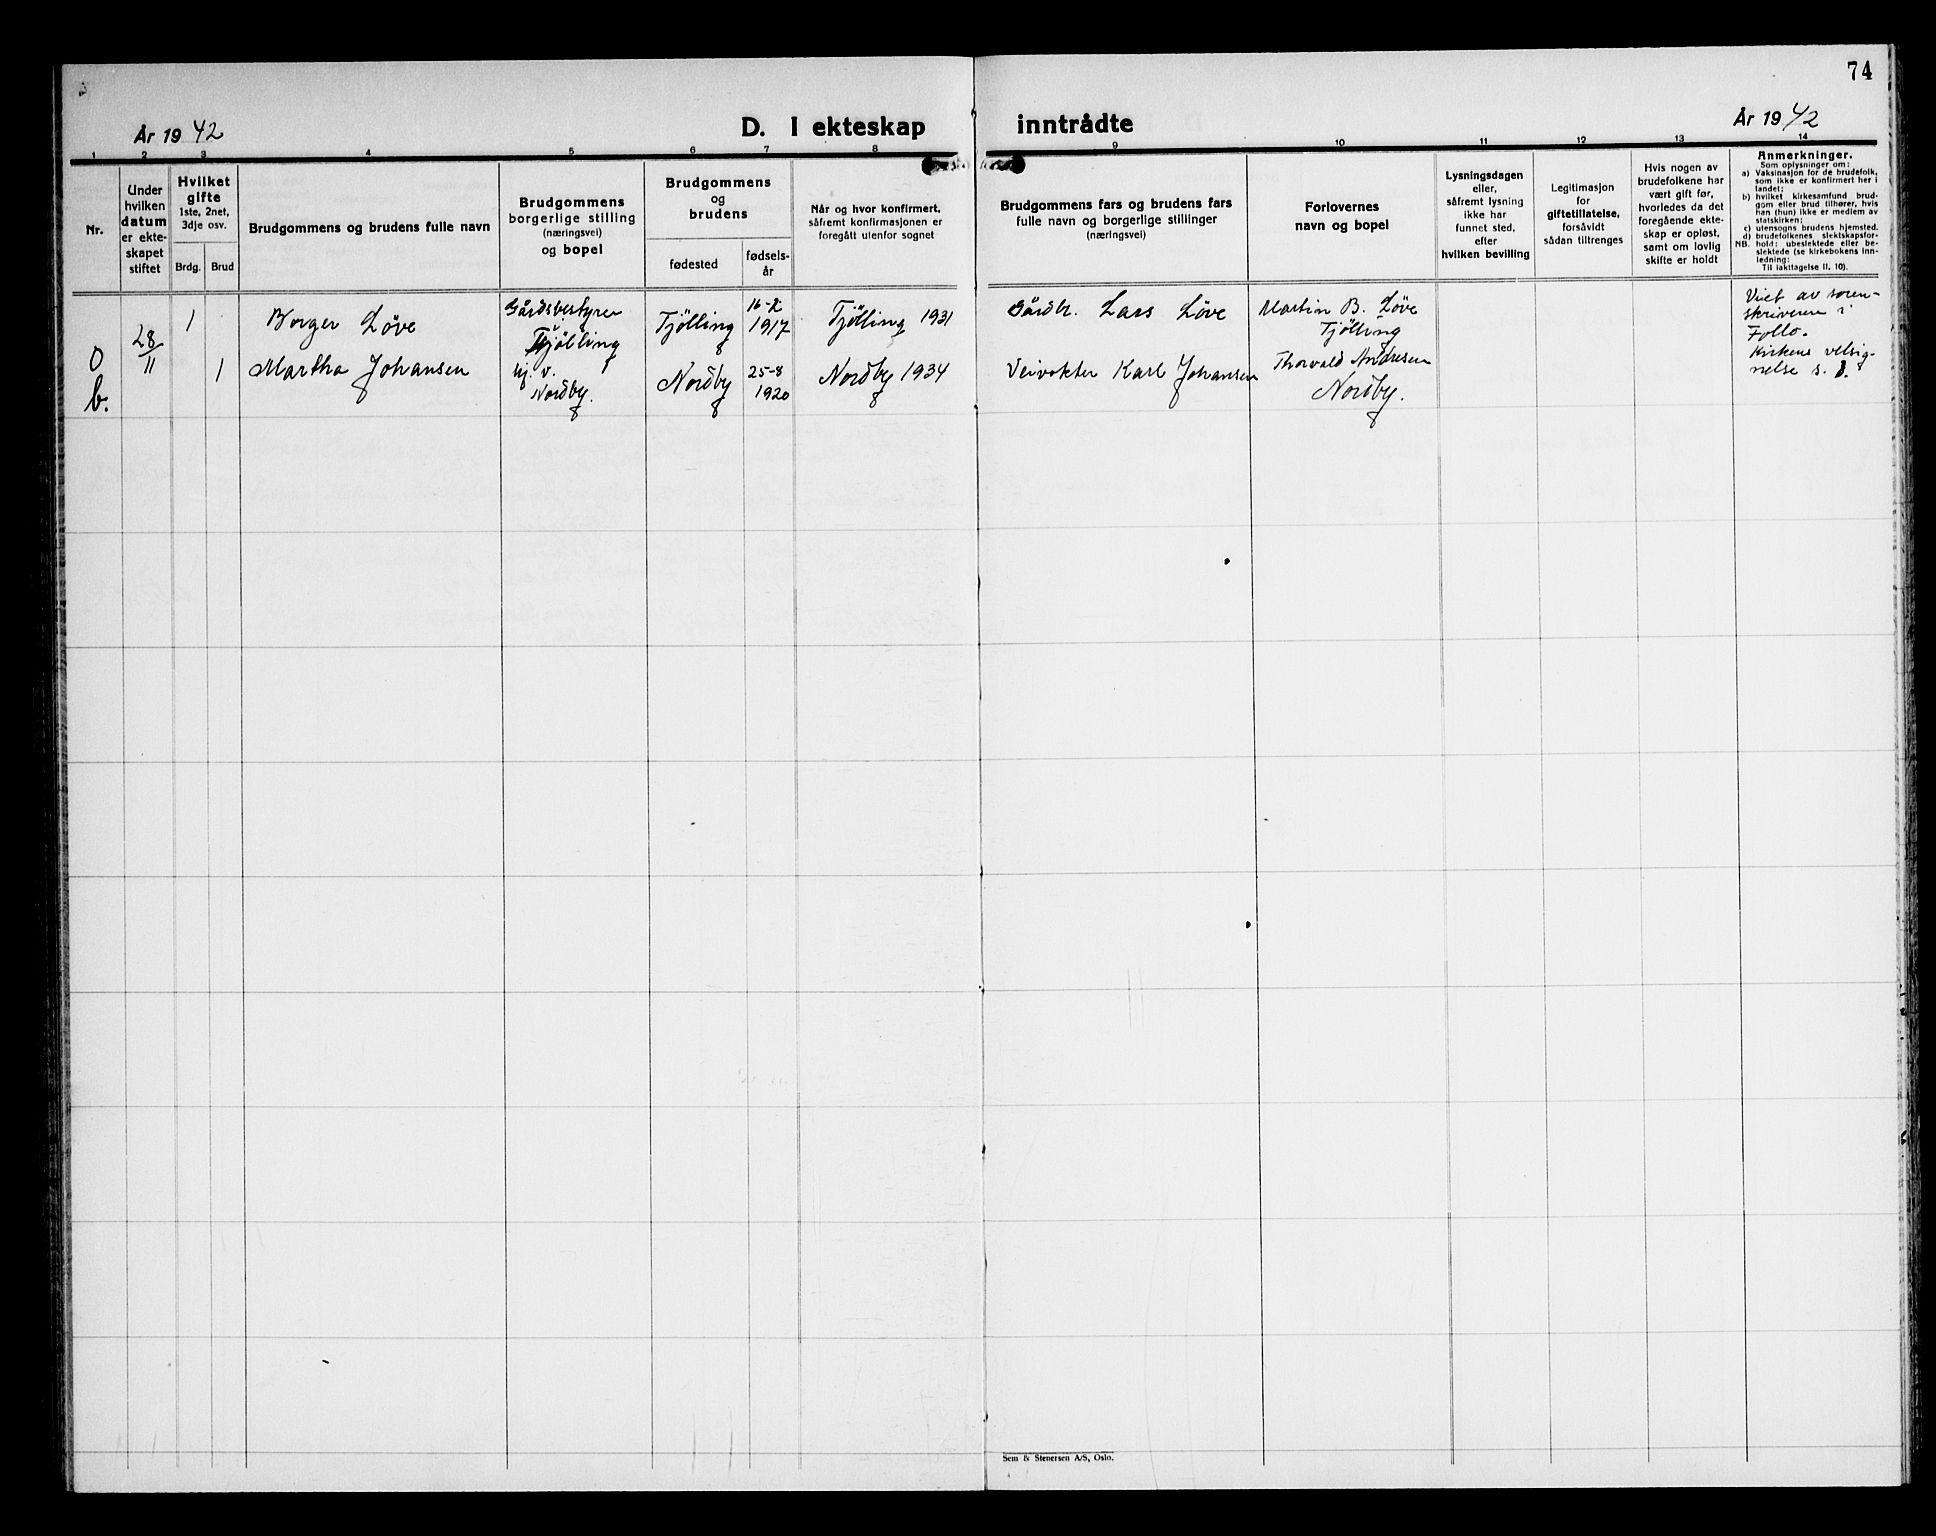 74
År 1942
D. I ekteskap
inntrådte
År 1942
1 2 3 4 5 6 7 8 9 10 11 12 13 14
Nr.
Under
hvilken
datum
er ekte-
skapet
stiftet
Hvilket
gifte
1ste, 2net,
3dje osv.
Brdg. Brud
Brudgommens og brudens fulle navn
Brudgommens
borgerlige stilling
(næringsvei)
og bopel
Brudgommens
og
brudens
fødested
fødsels-
år
Når og hvor konfirmert,
såfremt konfirmasjonen er
foregått utenfor sognet
Brudgommens fars og brudens fars
fulle navn og borgerlige stillinger
(næringsvei)
Forlovernes
navn og bopel
Lysningsdagen
eller,
såfremt lysning
ikke har
funnet sted,
efter
hvilken bevilling
Legitimasjon
for
giftetillatelse,
forsåvidt
sådan tiltrenges
Hvis nogen av
brudefolkene har
vært gift før,
hvorledes da det
foregående ekte-
skap er opløst,
samt om lovlig
skifte er holdt
Anmerkninger.
Som oplysninger om:
a) Vaksinasjon for de brudefolk,
som ikke er konfirmert her i
landet;
b) hvilket kirkesamfund brud-
gom eller brud tilhører, hvis
han (hun) ikke er medlem av
statskirken;
c) utensogns brudens hjemsted.
d) brudefolkenes slektskapsfor-
NB. hold: ubeslektede eller be-
slektede (se kirkebokens inn-
ledning:
Til iakttagelse II. 10).
0
b.
28
11
1
Borger Löve
Gårdsbestyrer
Tjölling
Tjölling
16-2
1917
Tjölling 1931
Gårdbr. Lars Löve
Martin B. Löve
Tjölling
Viet av soren-
skriveren i
Follo.
Kirkens velsig-
nelse s. d.
1
Martha Johansen
hj. v.
Nordby.
Nordby
25-8
1920
Nordby 1934
Veivokter Karl Johansen
Thorvald Andresen
Nordby.
Sem & Stenersen A/S, Oslo.